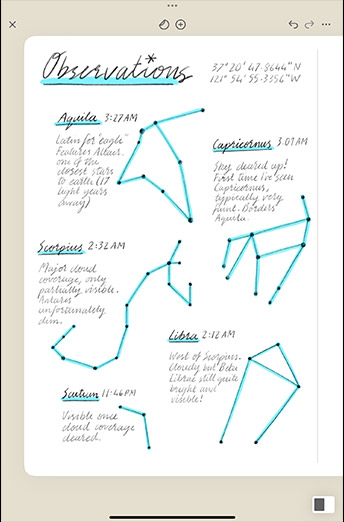 Observations
37° 20' 47.8644" N
121° 54' 55.3356" W
Aquila 3:27 AM
Latin for "eagle"
Features Altair,
one of the
closest stars
to earth (17
light years
away)
Capricornus 3:07 AM
Sky cleared up!
First time I've seen
Capricornus,
typically very
faint. Borders
Aquila.
Scorpius 2:32 AM
Major cloud
coverage, only
partially visible.
Antares
unfortunately
dim.
Libra 2:12 AM
West of Scorpius.
cloudy but Beta
Librae still quite
bright and
visible!
Scutum 11:46 PM
Visible once
cloud coverage
cleared.